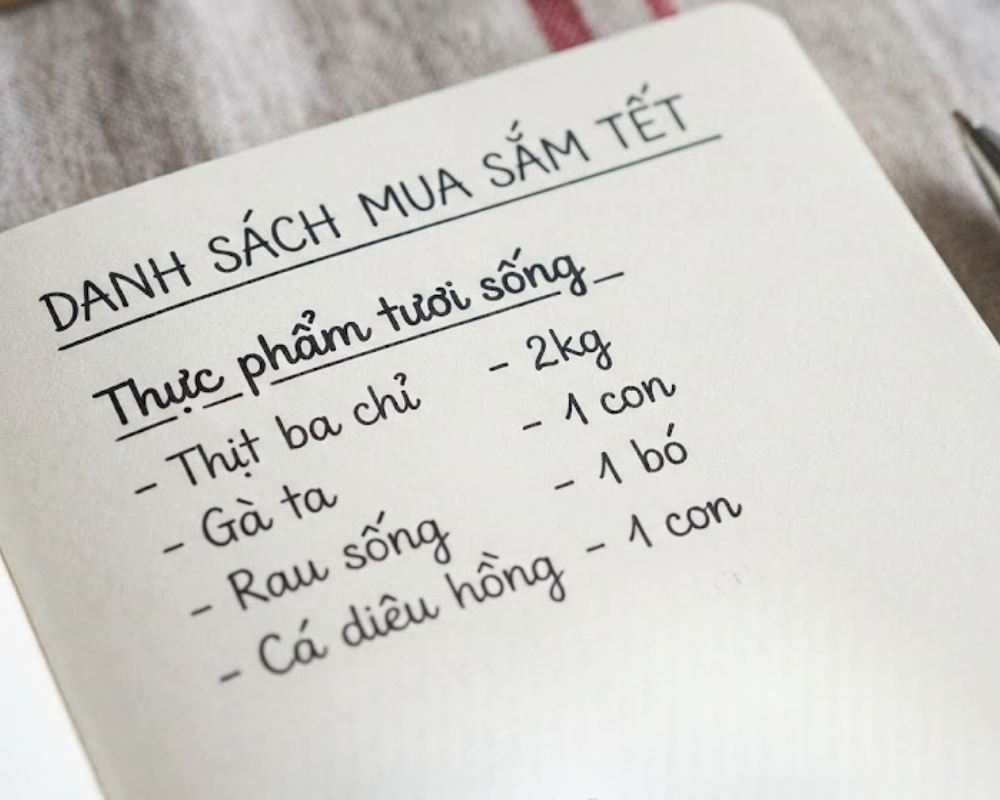 DANH SÁCH MUA SẮM TẾT
Thực phẩm tươi sống
- Thịt ba chỉ - 2kg
- Gà ta - 1 con
- Rau sống - 1 bó
- Cá diêu hồng - 1 con